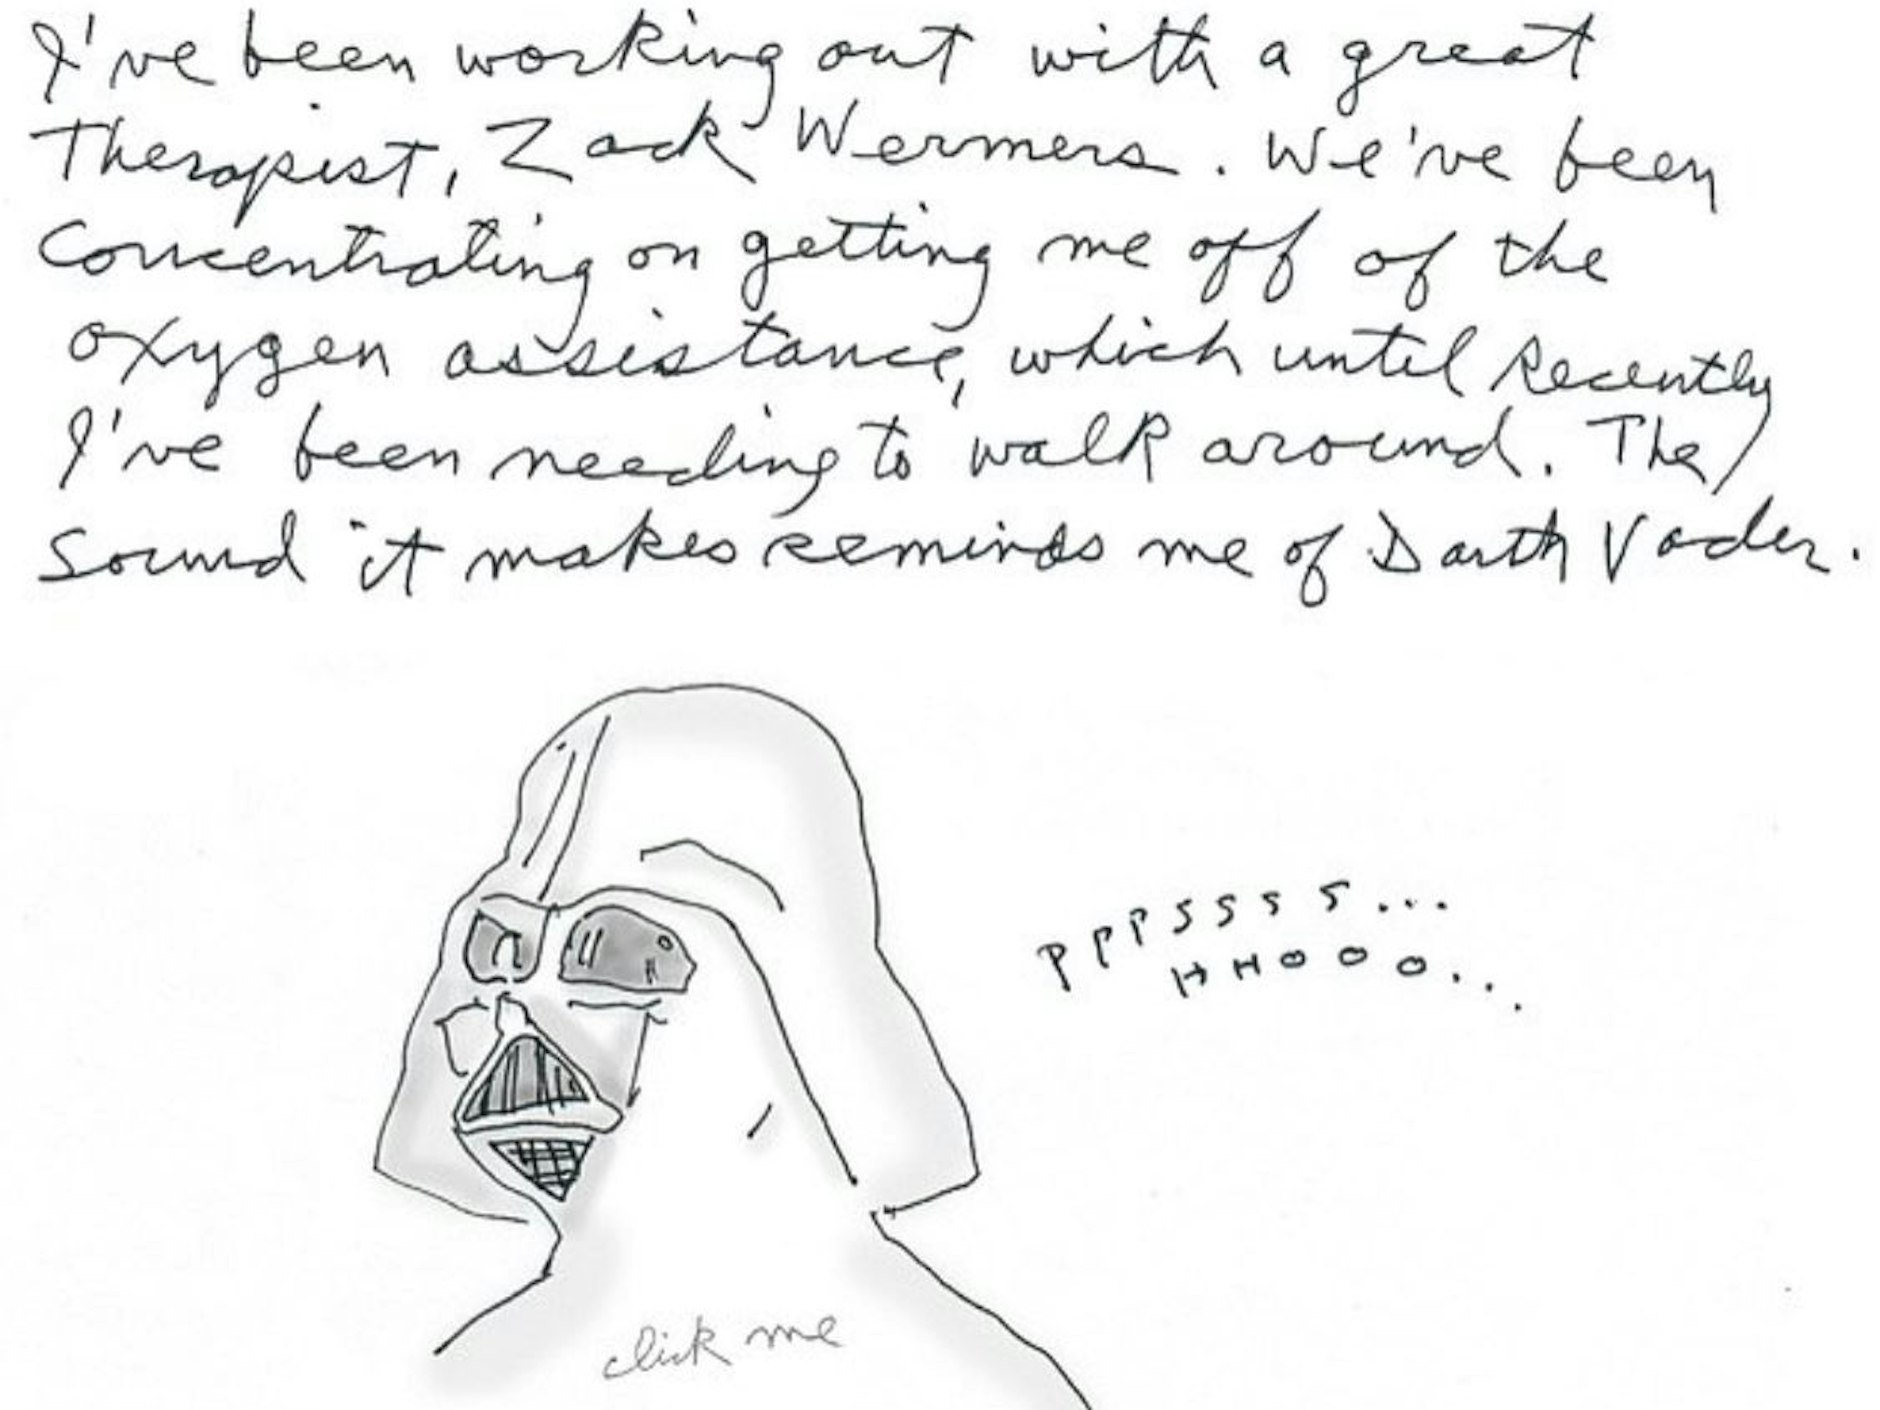 I've been working out with a great
Therapist, Zack Wermers. We've been
Concentrating on getting me off of the
oxygen assistance, which until Recently
I've been needing to walk around. The
Sound it makes reminds me of Darth Vader.
PPPSSSS...
HHOOO...
click me